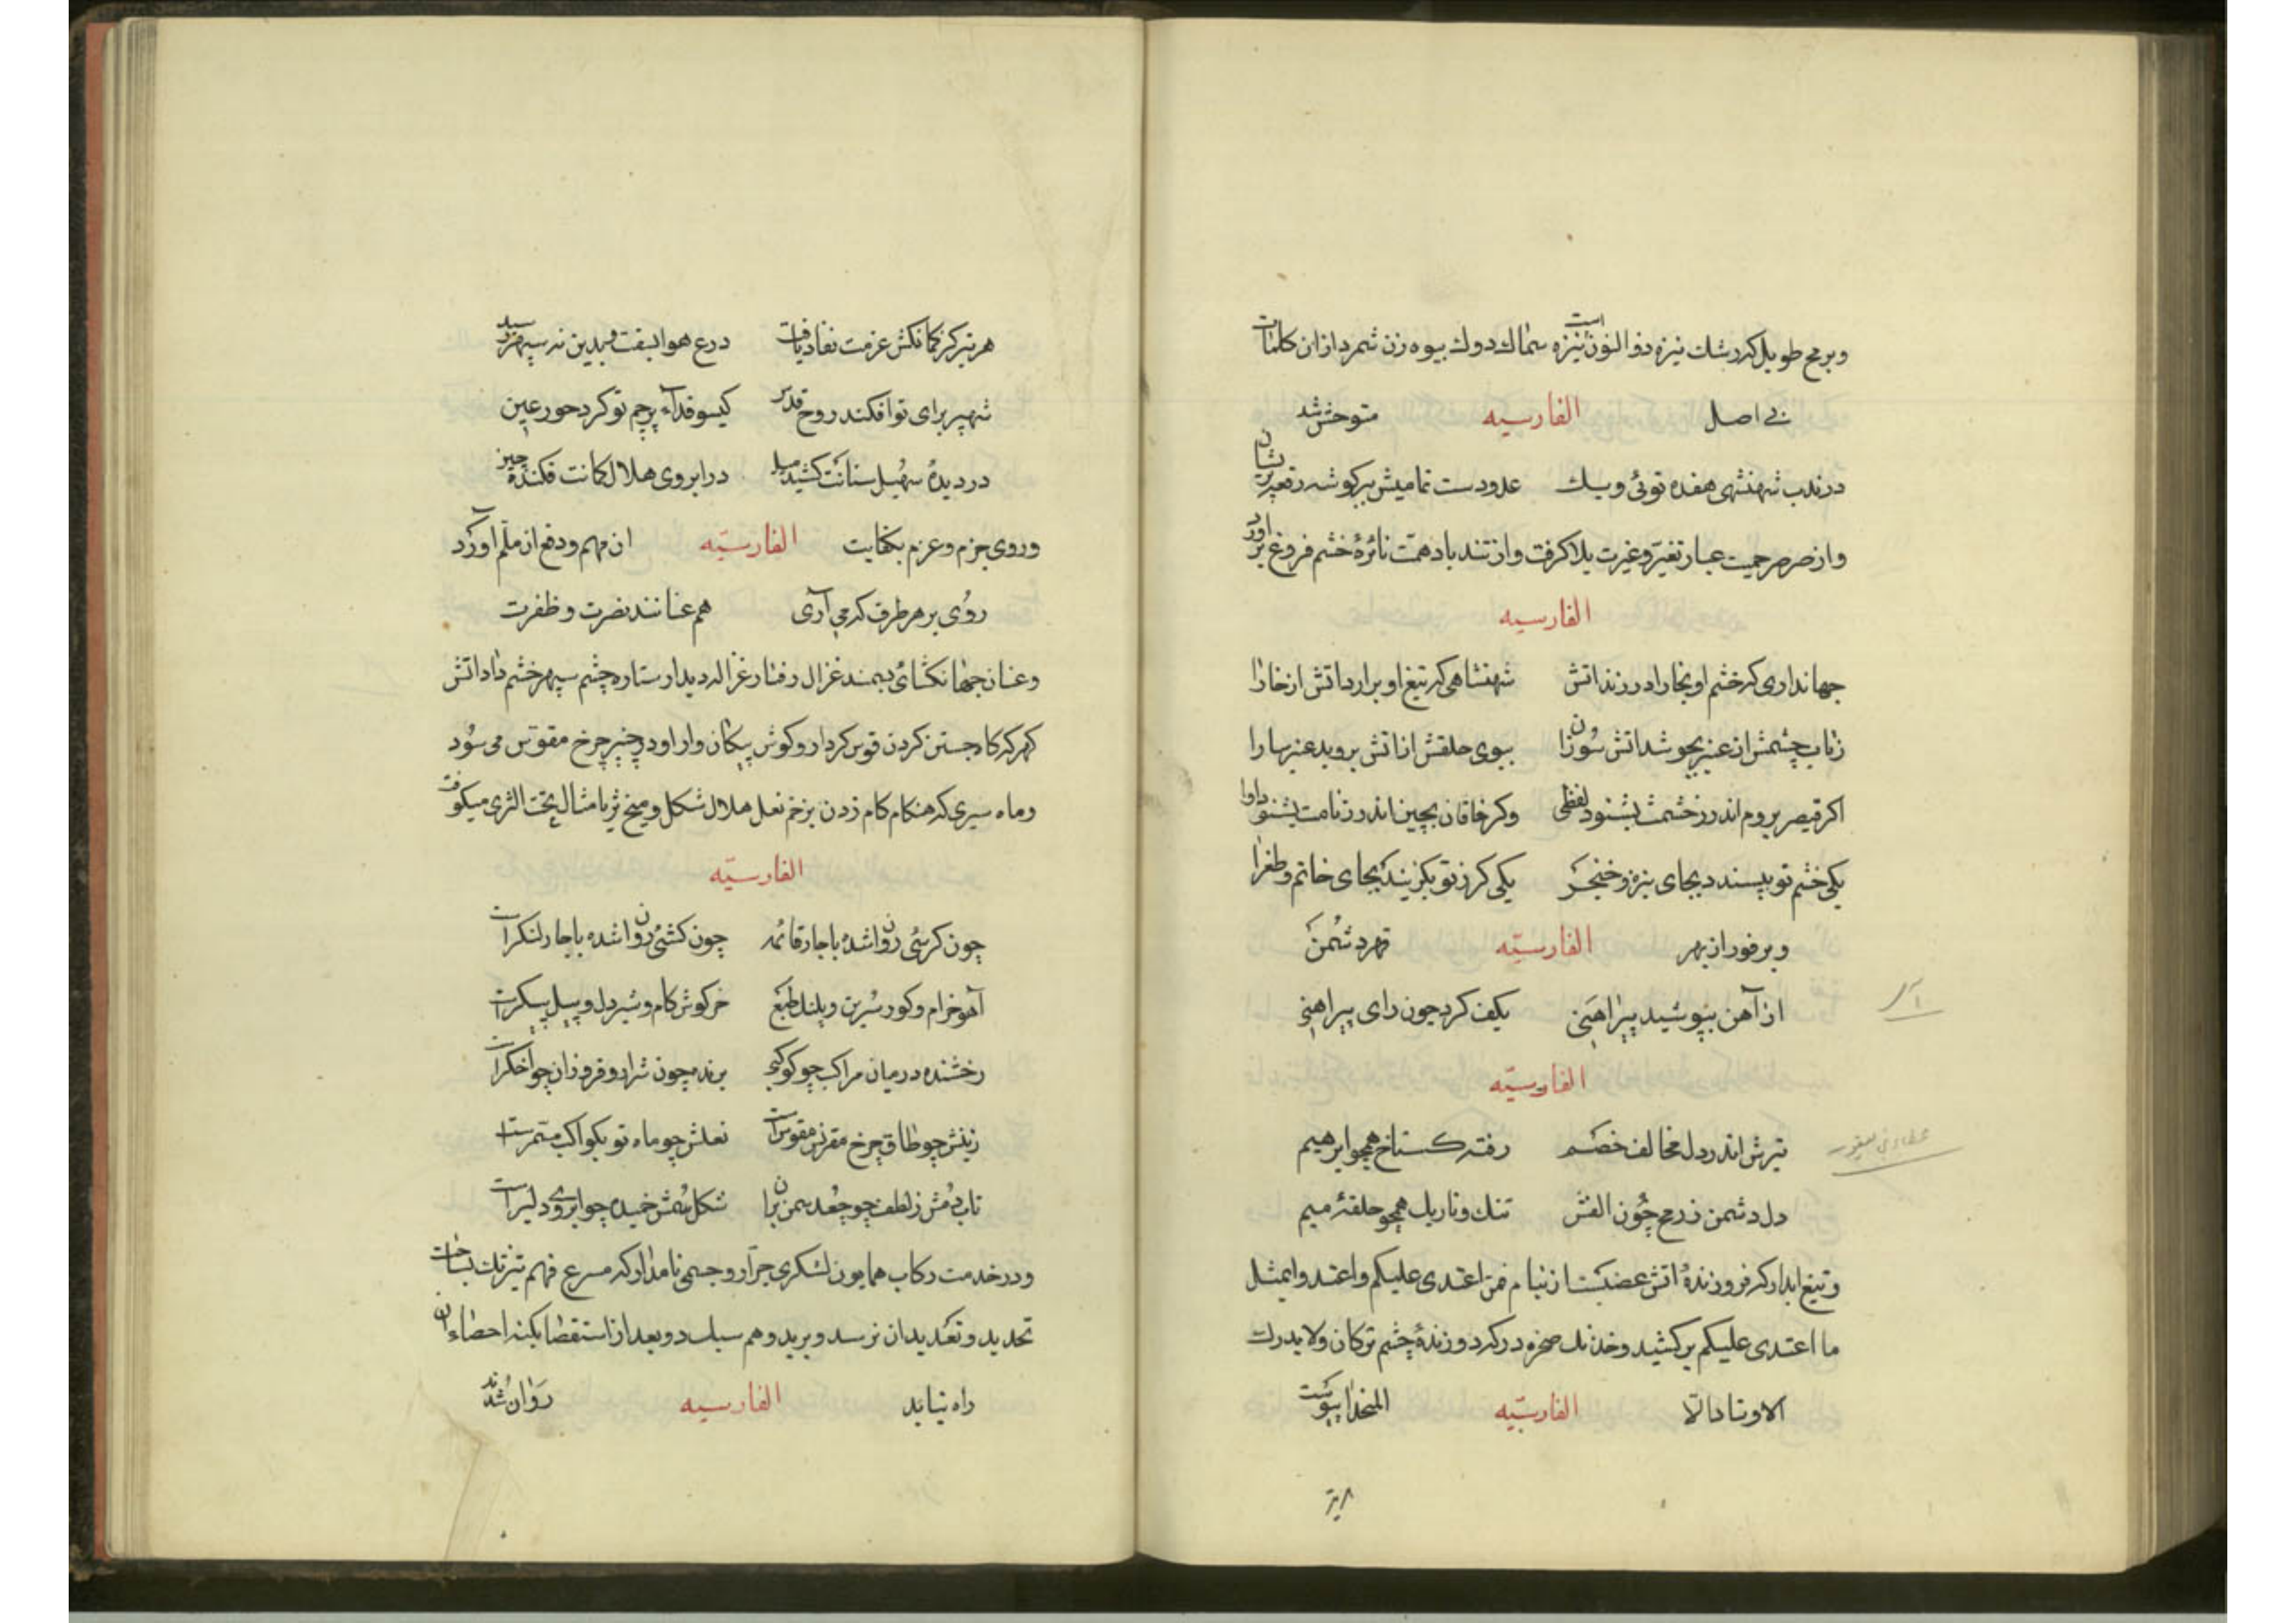 وبرمح طویل کردشك نیزه ذوالنون است نیزه سماك دوك بیوه زن شمرد ازان کلمات
بی اصل الفارسیه متوحش شد
در ندب شهنشهی هفده توئی ویك عدو دست تمامیش بر کوشه رقعه
واز صرصر حمیت غبار تغیر وغیرت بالا کرفت واز تند باد همت نائرهٔ خشم فروغ بر آورد
الفارسیه
جهانداری که خشم او بخارا در زند اتش شهنشاهی که تیغ او برارد اتش از خارا
زتاب چشمش از عنبر بجوشد اتش سوزان ببوی حلقش از اتش بروید عنبر سارا
اکر قیصر بروم اندر زخشمت بشنود لفظی وکر خاقان بچین اندر زنامت بشنود اوا
یکی خشم تو بپسندد بجای نیزه وخنجر یکی کرز تو بکزیند بجای خاتم وطغرا
وبر فور از بهر الفارسیه قهر دشمن
از آهن بپوشید پیراهنی بکف کرد چون رای پیراهنی
الفارسیه
تیرش اندر دل مخالف خصم رفته کستاخ همچو ابرهیم
دل دشمن زرمح چون الفش تنك وتاریك همچو حلقهٔ میم
وتیغ ابدار که فروزندهٔ اتش غضبست از نیام فمن اعتدی علیکم واعتدوا بمثل
ما اعتدی علیکم بر کشید وخدنك صخره در که دوزندهٔ چشم ترکان ولا یدرك
الاوتار الا الفارسیه
هر تیر کز کمانکش عزمت نفاذ یافت درع هوا بسفت وبدین نه سپر رسید
شهپر برای تو افکند روح قدس کیسو فدآء پرچم تو کرد حور عین
در دیدهٔ سهیل سنانت کشیده میل در ابروی هلال کمانت فکنده چین
وروی بحزم وعزم بکفایت الفارسیه ان مهم ودفع ان ملم آورد
روی بر هر طرف که می آری هم عنانند نصرت وظفرت
وعنان جهانکشائی بسمند غزال رفتار غزاله دیدار ستاره چشم سپهر خشم داد اتش
کهر که کاه جستن کردن قوس کردار وکوش پیکان وار او در چنبر چرخ مقوس می سود
وماه سیری که هنکام کام زدن بزخم نعل هلال شکل ومیخ ثریا مثال تخت الثری میکوفت
الفارسیه
چون کرسئی روان شده با چار قائمه چون کشتئی روان شده با چار لنکرست
آهو خرام وکور سرین وپلنك طبع خرکوش کام وشیر دل وپیل پیکرست
رخشنده در میان مراکب چو کوکبی برنده چون شرار وفروزان چو اخکرست
زینش چو طاق چرخ مقرنس مقوس است نعلش چو ماه نو بکواکب مسمرست
تاب دمش زلطف چو جعد سمن بران شکل سمش خمیده چو ابروی دلبرست
ودر خدمت رکاب همایون لشکری جرار وجمعی نامدار که مسرع فهم تیز تك بساحت
تحدید وتعدید ان نرسد وبرید وهم سبك دو بعد از استقصا بکنه احصاء ان
راه نیابد الفارسیه روان شدند